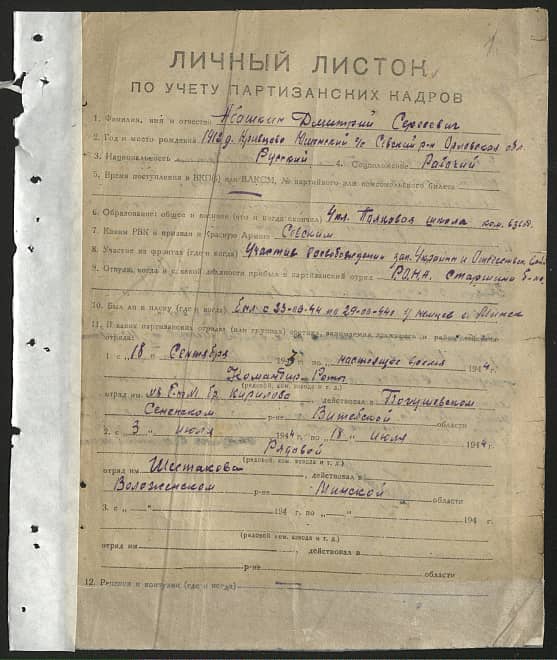 ЛИЧНЫЙ ЛИСТОК
ПО УЧЕТУ ПАРТИЗАНСКИХ КАДРОВ
1. Фамилия, имя и отчество Дмитрий Сергеевич
2. Год и место рождения 1912 д. Кривцово с/с Севский р-н Орловская обл.
3. Национальность Русский 4. Соцположение Рабочий
5. Время поступления в ВКП(б) или ВЛКСМ, № партийного или комсомольского билета
6. Образование: общее и военное (что и когда окончил) 4 кл. Полковая школа ком.
7. Каким РВК и призван в Красную Армию Севским
8. Участие на фронтах (где и когда) Участие освобождении зап. Украины и
9. Откуда, когда и с какой должности прибыл в партизанский отряд РОНА. Старшина
10. Был ли в плену (где и когда) Был с по у немцев г. Минск
11. В каких партизанских отрядах (или группах) состоял, занимаемая должность и район действия
отряда:
1. с „ 18 „ Сентября 194 г. по настоящее время 1944
Командир Роты
(рядовой, ком. взвода и т. д.)
отряд им. бр. Кирилова, действовал в
Сененском р-не Витебской области
2. с „ 3 „ июля 1944 г. по „ 18 „ июля 1944 г.
Рядовой
(рядовой, ком. взвода и т. д.)
отряд им. Шестакова, действовал в
Воложенском р-не Минской области
3. с „ „ 194 г. по „ „ 194 г.
(рядовой, ком. взвода и т. д.)
отряд им. , действовал в
р-не области
12. Ранения и контузии (где и когда)